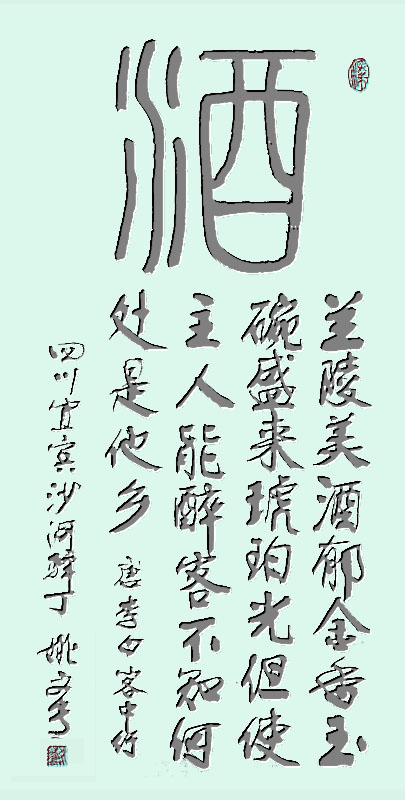 酒
兰陵美酒郁金香玉
碗盛来琥珀光但使
主人能醉客不知何
处是他乡 唐李白客中行
四川宜宾沙河驿丁 姚文